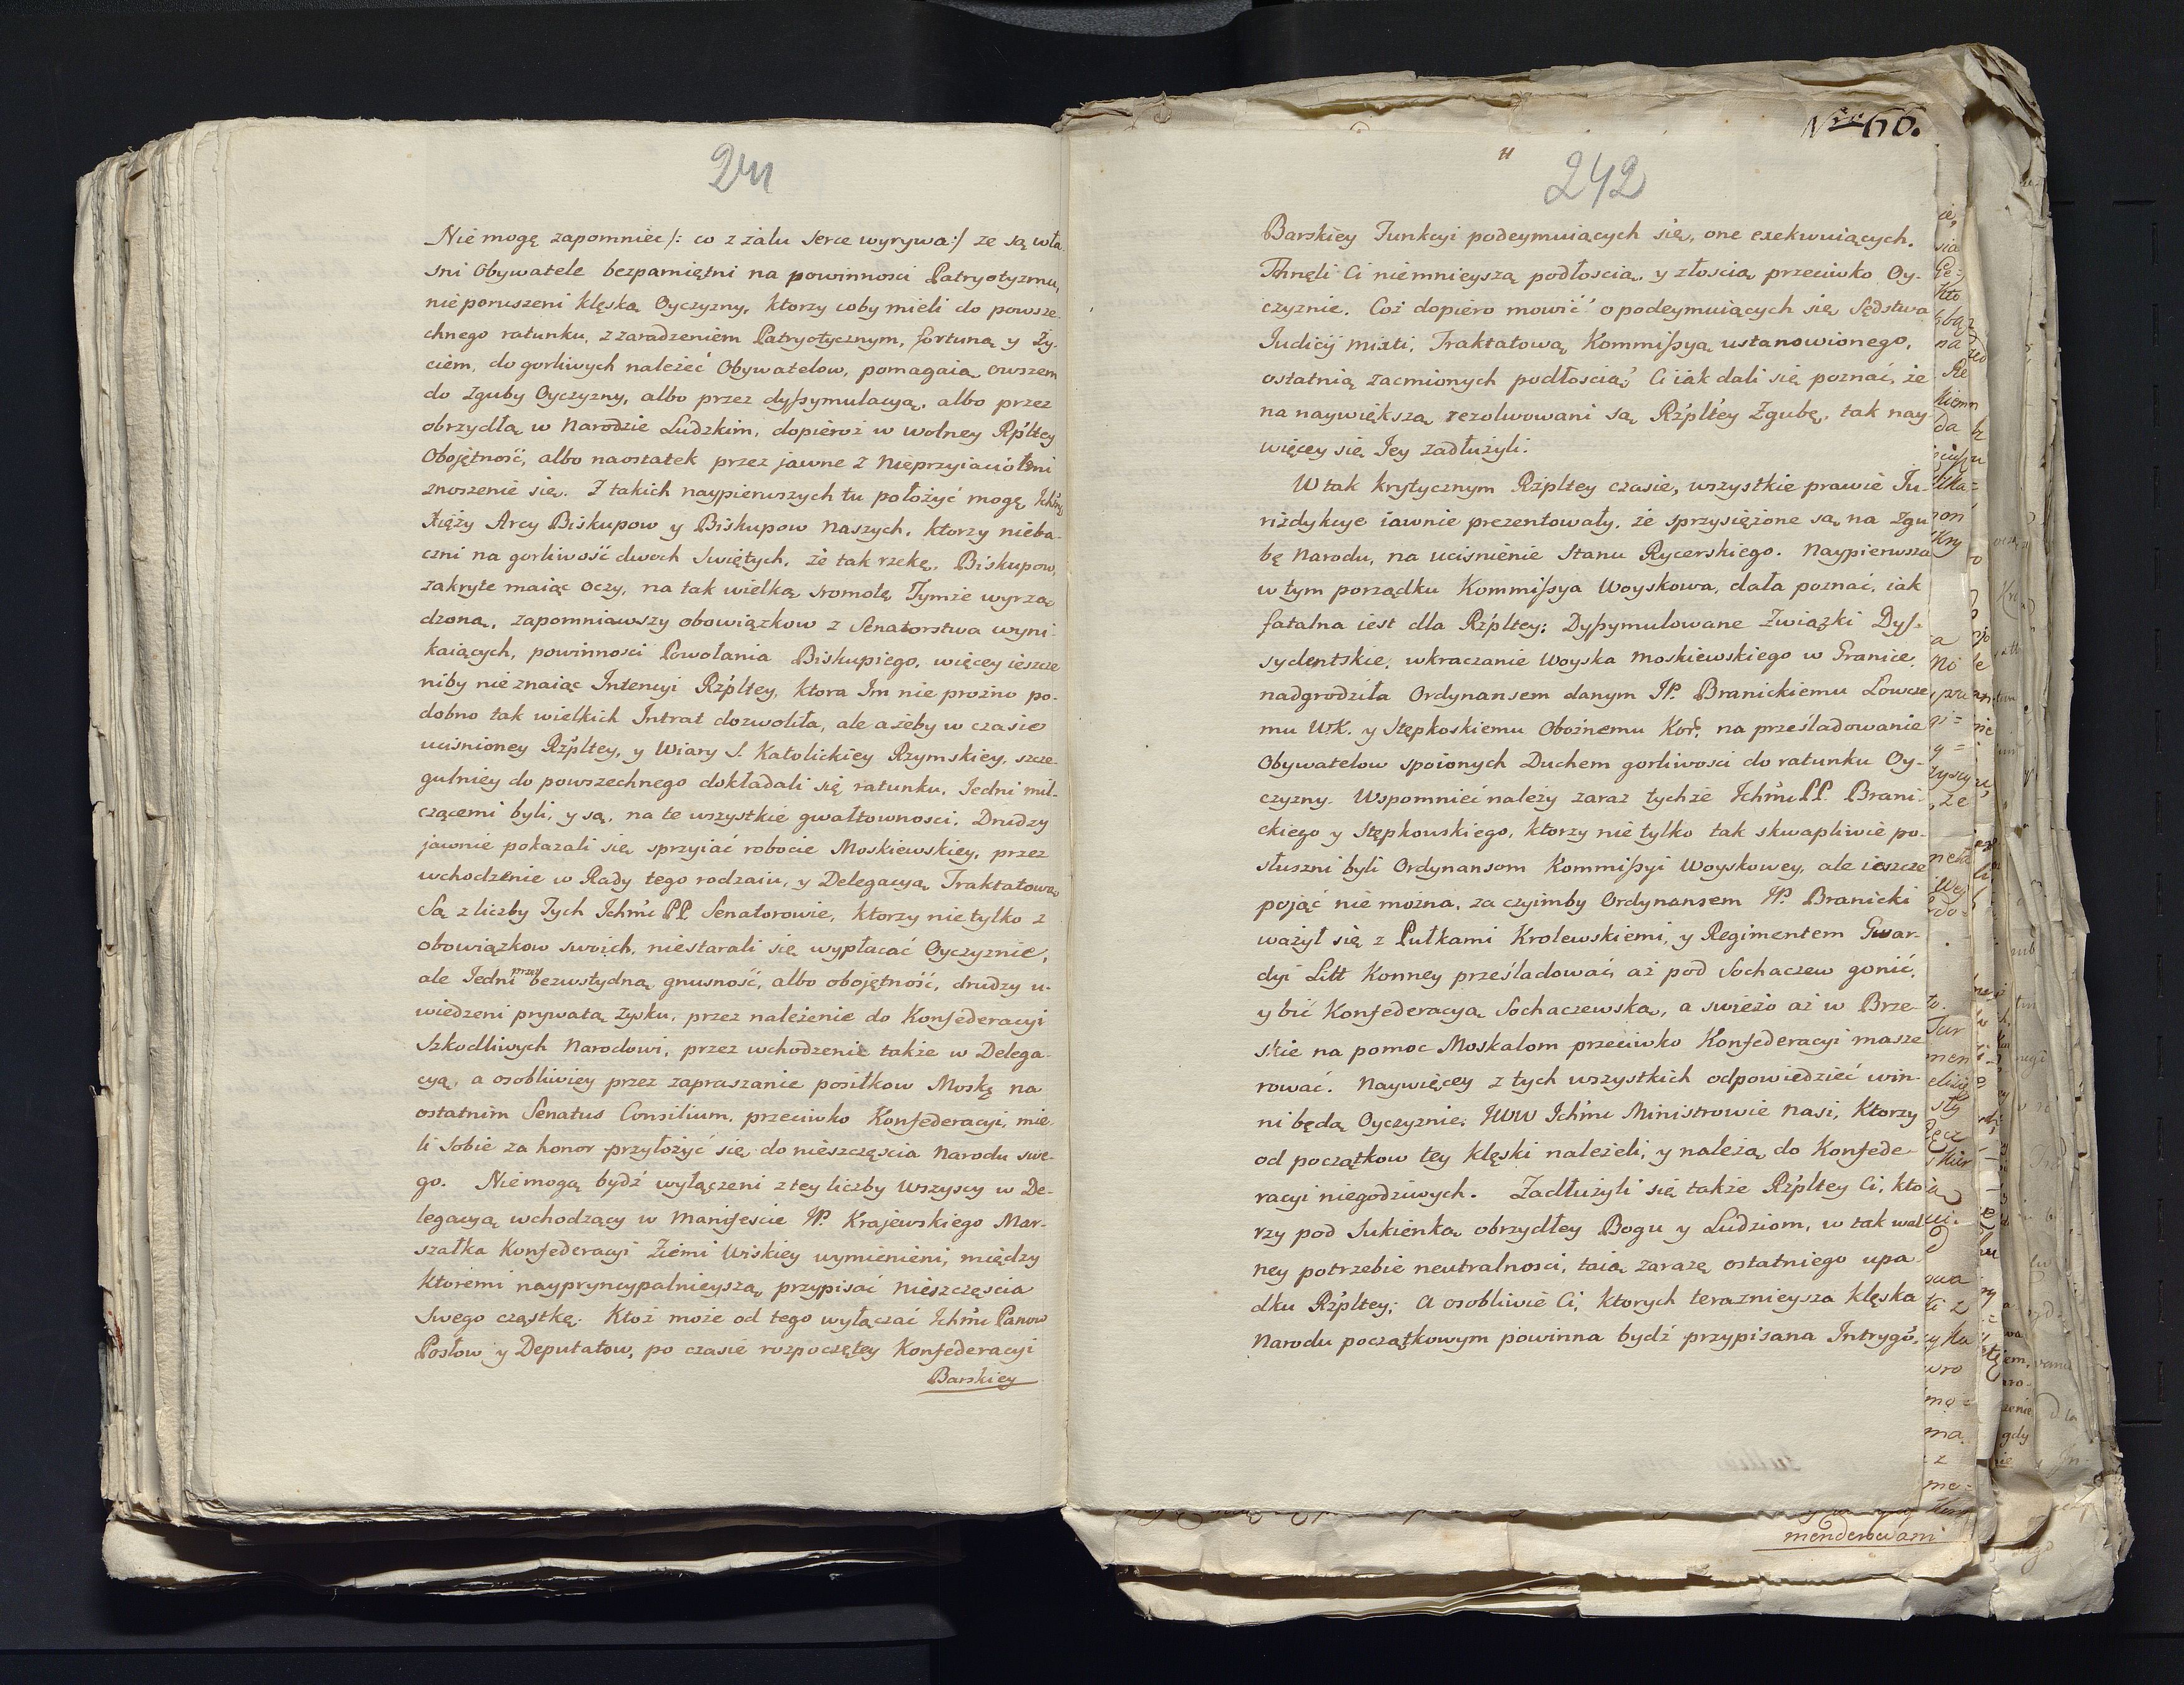 241
Nie mogę zapomniec /: co z zalu serce wyrywa :/ ze są wła-
sni Obywatele bezpamiętni na powinnosci Patryotyzmu,
nieporuszeni klęską Oyczyzny, ktorzy coby mieli do powsze-
chnego ratunku, z zaradzeniem Patryotycznym, fortuną y Ży-
ciem, do gorliwych należéć Obywatelow, pomagaią owszem
do Zguby Oyczyzny, albo przez dyssymulacyą, albo przez
obrzydłą w Narodzie Ludzkim, dopieroż w wolney Rpltey
Obojętność, albo naostatek przez jawne z Nieprzyiaciółmi
znoszenie się. Z takich naypierwszych tu położyć mogę Ichmć
Xięży Arcy Biskupow y Biskupow Naszych, ktorzy nieba-
czni na gorliwość dwoch Swiętych, że tak rzekę, Biskupow,
zakryte maiąc oczy, na tak wielką sromotę Tymże wyrzą-
dzoną, zapomniawszy obowiązkow z Senatorstwa wyni-
kaiących, powinnosci Powołania Biskupiego, więcey ieszcze
niby nieznaiąc Intencyi Rzpltey, ktora Im nie prożno po-
dobno tak wielkich Intrat dozwoliła, ale ażeby w czasie
ucisnioney Rzpltey, y Wiary S. Katolickiey Rzymskiey, szcze-
gulniey do powszechnego dokładali się ratunku. Jedni mil-
czącemi byli, y są, na te wszystkie gwałtownosci. Drudzy
jawnie pokazali się sprzyiać robocie Moskiewskiey, przez
wchodzenie w Rady tego rodzaiu, y Delegacyą Traktatową
Są z liczby Tych Ichmć PP. Senatorowie, ktorzy nietylko z
obowiązkow swoich, niestarali się wypłacać Oyczyznie,
ale Jedni przez bezwstydną gnusność, albo obojętność, drudzy u-
wiedzeni prywatą zysku, przez należenie do Konfederacyi
Szkodliwych Narodowi, przez wchodzenie także w Delega-
cyą, a osobliwiey przez zapraszanie posiłkow Moskę na
ostatnim Senatus Consilium, przeciwko Konfederacyi, mie-
li sobie za honor przyłożyć się do nieszczęscia Narodu swe-
go. Niemogą bydź wyłączeni z tey liczby wszyscy w De-
legacyą wchodzący w Manifescie JP. Krajewskiego Mar-
szałka Konfederacyi Ziemi Wiskiey wymienieni, między
ktoremi nayprycypalnieyszą przypisać nieszczęscia
Swego cząstkę. Ktoż może od tego wyłączać Ichmć Panow
Posłow y Deputatow, po czasie rozpoczętey Konfederacyi
Barskiey
Nro 66.
242
Barskiey Funkcyi podeymuiących się, one exekwuiących.
Tchnęli Ci niemnieyszą podłoscią, y złoscią przeciwko Oy-
czyznie. Coż dopiero mowić o podeymuiących się Sędstwa
Judicij mixti, Traktatową Kommissyą ustanowionego,
ostatnią zacmionych podłoscią? Ci iak dali się poznać, że
na naywiększą rezolwowani są Rzpltey Zgubę, tak nay-
więcey się Jey zadłużyli.
W tak krytycznym Rzpltey czasie, wszystkie prawie Ju-
rizdykcye iawnie prezentowały, że sprzysiężone są na Zgu-
bę Narodu, na ucisnienie Stanu Rycerskiego. Naypierwsza
w tym porządku Kommissya Woyskowa, dała poznać, iak
fatalna iest dla Rzpltey: Dyssymulowane Związki Dys-
sydentskie, wkraczanie Woyska Moskiewskiego w Granice,
nadgrodziła Ordynansem danym JP. Branickiemu Łowcze-
mu WK. y Stępkoskiemu Obożnemu Kor. na prześladowanie
Obywatelow spoionych Duchem gorliwosci do ratunku Oy-
czyzny. Wspomnieć należy zaraz tychże Ichmć PP. Brani-
ckiego y Stępkowskiego, ktorzy nie tylko tak skwapliwie po-
słuszni byli Ordynansom Kommissyi Woyskowey, ale ieszcze
pojąć nie można, za czyimby Ordynansem JP. Branicki
ważył się z Pułkami Krolewskiemi, y Regimentem Gwar-
dyi Litt Konney prześladować, aż pod Sochaczew gonić,
y bić Konfederacyą Sochaczewską, a swieżo aż w Brze-
skie na pomoc Moskalom przeciwko Konfederacyi masze-
rować. Naywięcey z tych wszystkich odpowiedzieć win-
ni będą Oyczyznie, JWW Ichmć Ministrowie Nasi, Ktorzy
od początkow tey klęski należeli, y należą do Konfede-
racyi niegodziwych. Zadłużyli się także Rzpltey Ci, kto-
rzy pod Sukienką obrzydłey Bogu y Ludziom, w tak wal-
ney potrzebie neutralnosci, taią zarazę ostatniego upa-
dku Rzpltey; A osobliwie Ci, ktorych teraznieysza klęska
Narodu początkowym powinna bydź przypisana Intrygo-
menderowani